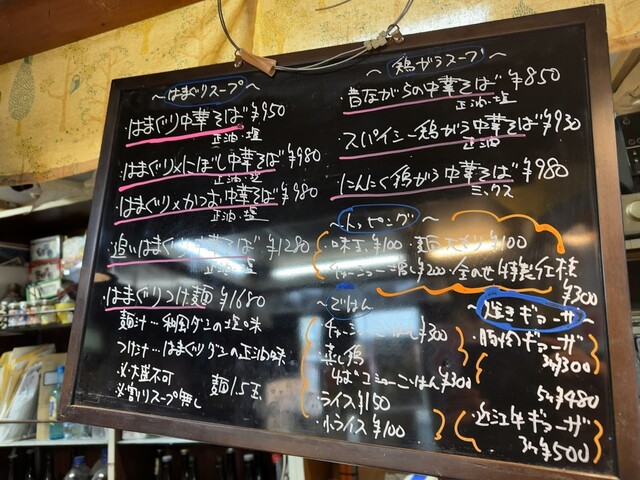 ～はまぐりスープ～
・はまぐり中華そば ¥950
正油・塩
・はまぐり×にぼし中華そば ¥980
正油・塩
・はまぐり×かつお中華そば ¥980
正油・塩
・追いはまぐり中華そば ¥1280
正油・塩
・はまぐりつけ麺 ¥1680
麺汁…利尻ダシの塩味
つけ汁…はまぐりダシの正油味
※大盛不可 麺1.5玉
※割りスープ無し
～鶏がらスープ～
・昔ながらの中華そば ¥850
正油・塩
・スパイシー鶏がら中華そば ¥930
正油
・にんにく鶏がら中華そば ¥980
ミックス
～トッピング～
・味玉 ¥100・麺大盛り ¥100
・チャーシュー増し ¥200・全のせ特製仕様
¥300
～ごはん～
・チャーシューごはん ¥300
・蒸し鶏
ねぎコショーごはん ¥300
・ライス ¥150
・小ライス ¥100
～焼きギョーザ～
・豚肉ギョーザ
3ヶ ¥300
5ヶ ¥480
・近江牛ギョーザ
3ヶ ¥500